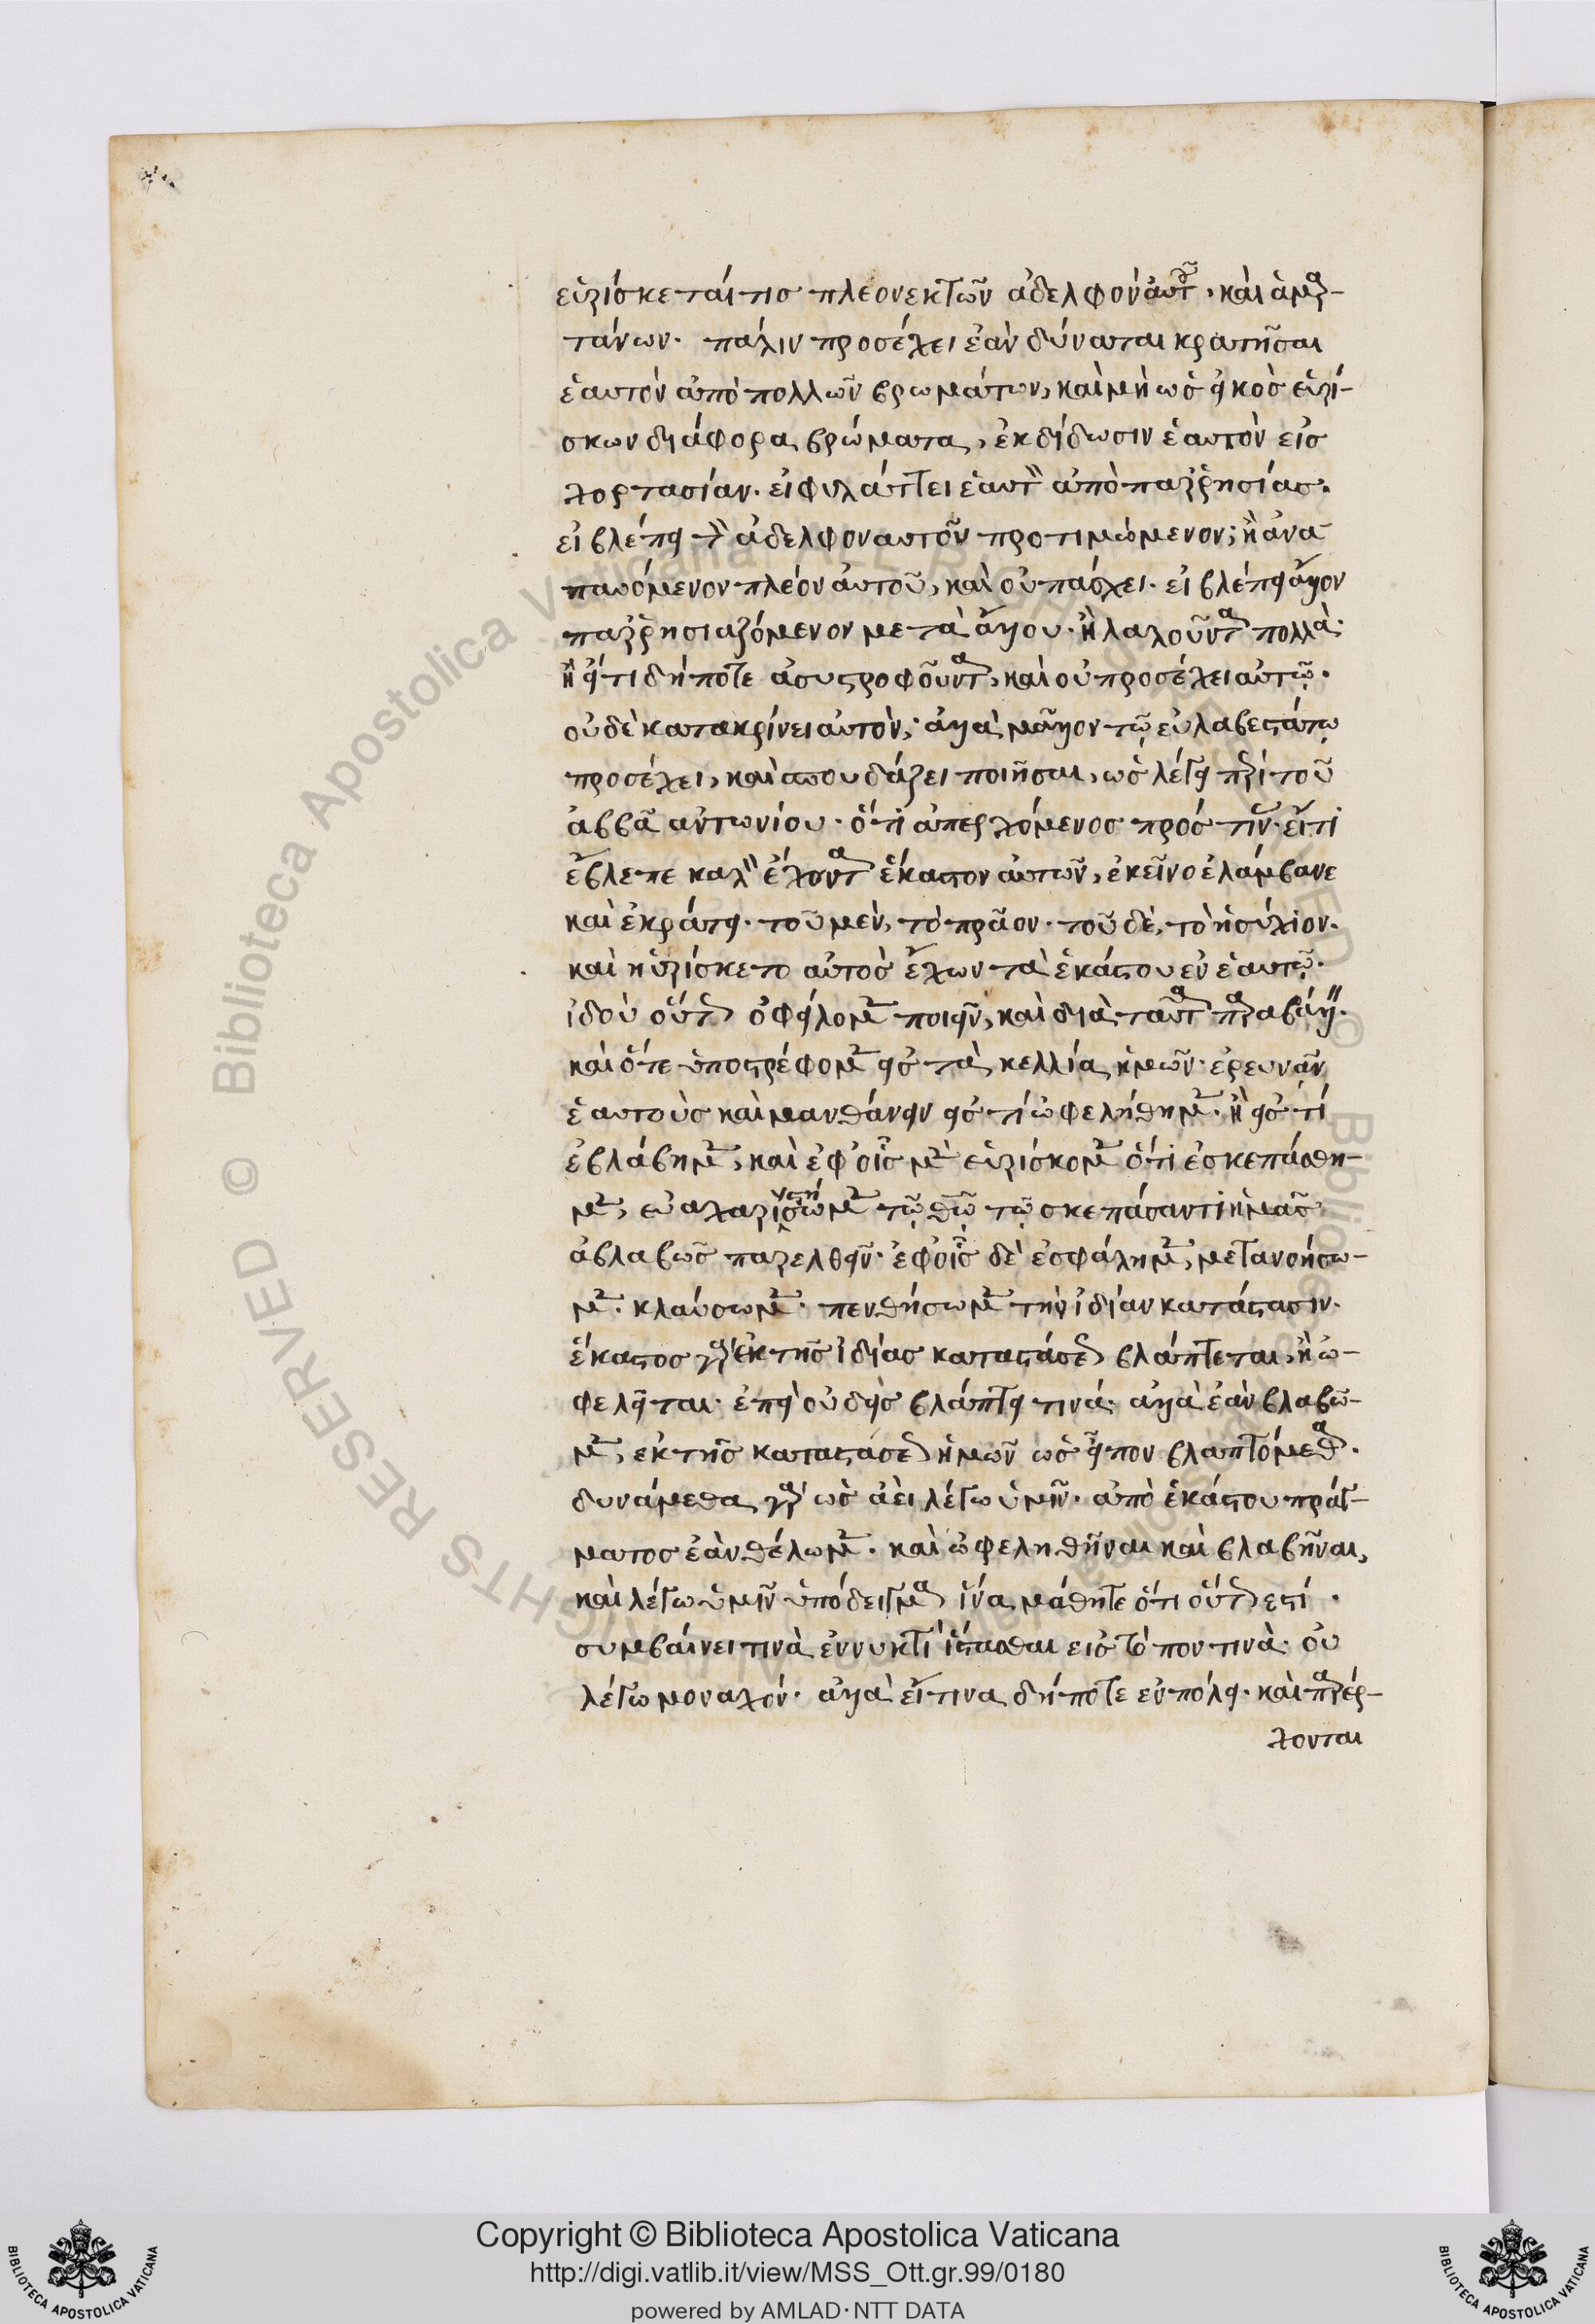 εὑρίσκεταί τις πλεονεκτῶν ἀδελφὸν αὐτοῦ, καὶ ἁμαρ-
τάνων. πάλιν προσέχει ἐὰν δύναται κρατῆσαι
ἑαυτὸν ἀπὸ πολλῶν βρωμάτων, καὶ μὴ ὡς εἰκὸς εὑρί-
σκων διάφορα βρώματα, ἐκδίδωσιν ἑαυτὸν εἰς
χορτασίαν. εἰ φυλάττει ἑαυτὸν ἀπὸ παρρησίας.
εἰ βλέπει τὸν ἀδελφον αυτοῦ προτιμώμενον; ἢ ἀνα
παυόμενον πλέον αὐτοῦ, καὶ οὐ πάσχει. εἰ βλέπει ἄλλον
παρρησιαζόμενον μετὰ ἄλλου. ἢ λαλοῦντα πολλὰ.
ἢ εἴ τι δήποτε ἀσυστροφοῦντα, καὶ οὐ προσέχει αὐτῷ.
οὐδὲ κατακρίνει αὐτὸν, ἀλλὰ μᾶλλον τῷ εὐλαβεστάτῳ
προσέχει, καὶ σπουδάζει ποιῆσαι, ὡς λέγει περὶ τοῦ
ἀββᾶ αντωνίου. ὅτι ἀπερχόμενος πρός τινα. εἴ τι
ἔβλεπε καλὸν ἔχοντα ἕκαστον αὐτῶν, ἐκεῖνο ἐλάμβανε
καὶ ἐκράτει. τοῦ μὲν, τὸ πρᾶον. τοῦ δὲ, τὸ ἡσύχιον.
καὶ ηὑρίσκετο αὐτὸς ἔχων τὰ ἑκάστου ἐν ἑαυτῷ.
ἰδοὺ οὕτως ὀφείλομεν ποιεῖν, καὶ διὰ ταῦτα παραβάλλειν.
καὶ ὅτε ὑποστρέφομεν εἰς τὰ κελλία ἡμῶν. ἐρευνᾶν
ἑαυτοὺς καὶ μανθάνειν εἰς τί ὠφελήθημεν. ἢ εἰς τί
ἐβλάβημεν, καὶ ἐφ' οἷς μὲν εὑρίσκομεν ὅτι ἐσκεπάσθη-
μεν, εὐχαριστήσωμεν τῷ θῷ τῷ σκεπάσαντι ἡμᾶς
ἀβλαβῶς παρελθεῖν. ἐφ' οἷς δὲ ἐσφάλημεν, μετανοήσω-
μεν. κλαύσωμεν. πενθήσωμεν τὴν ἰδίαν κατάστασιν.
ἕκαστος γὰρ ἐκ τῆς ἰδίας καταστάσεως βλάπτεται, ἢ ὠ-
φελεῖται. ἐπεὶ οὐδεὶς βλάπτει τινά. ἀλλὰ ἐὰν βλαβῶ-
μεν, ἐκ τῆς καταστάσεως ἡμῶν ὡς εἶπον βλαπτόμεθα.
δυνάμεθα γὰρ ὡς ἀεὶ λέγω ὑμῖν. ἀπὸ ἑκάστου πράγ-
ματος ἐὰν θέλωμεν. καὶ ὠφεληθῆναι καὶ βλαβῆναι,
καὶ λέγω ὑμῖν ὑπόδειγμα ἵνα μάθητε ὅτι οὕτως ἐστί.
συμβαίνει τινὰ ἐν νυκτὶ ἵστασθαι εἰς τόπον τινὰ. οὐ
λέγω μοναχόν. ἀλλὰ εἴ τινα δήποτε ἐν πόλει. καὶ παρέρ-
χονται
Copyright © Biblioteca Apostolica Vaticana
http://digi.vatlib.it/view/MSS_Ott.gr.99/0180
powered by AMLAD·NTT DATA